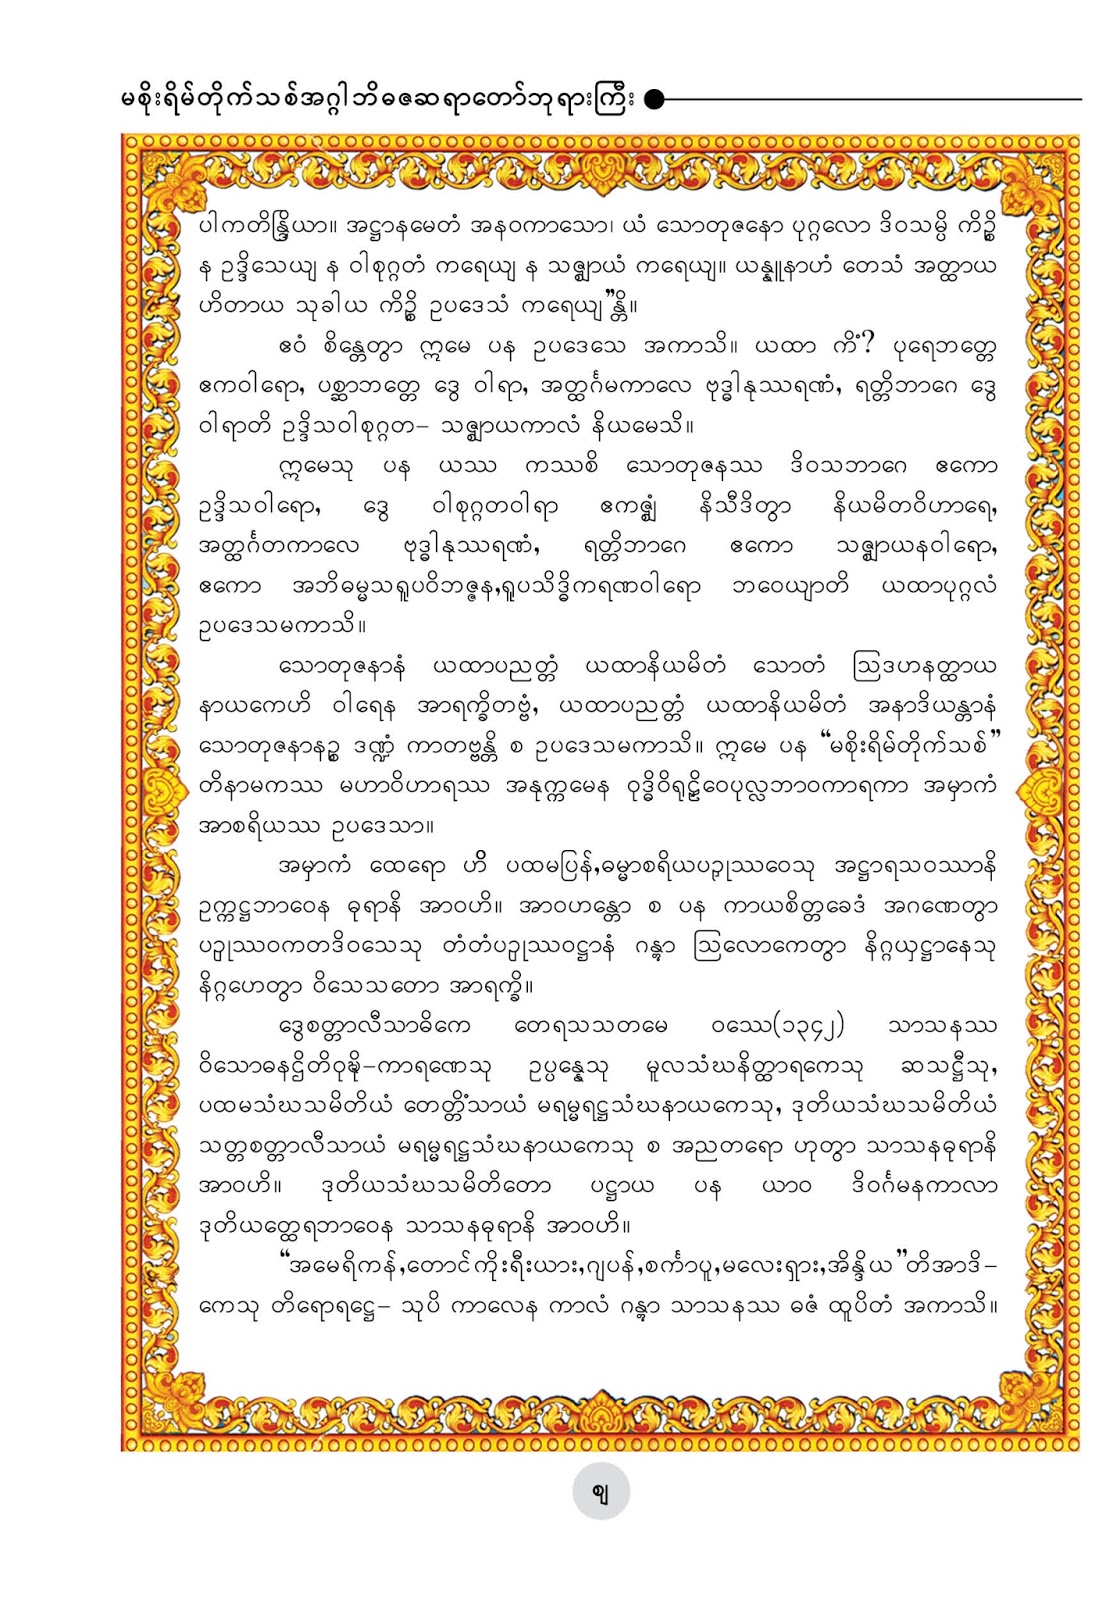 မစိုးရိမ်တိုက်သစ်အဂ္ဂါဘိဓဇဆရာတော်ဘုရားကြီး
ပါကတိန္ဒြိယာ။ အဋ္ဌာနမေတံ အနဝကာသော၊ ယံ သောတုဇနော ပုဂ္ဂလော ဒိဝသမ္ပိ ကိဉ္စိ
န ဥဒ္ဒိသေယျ န ဝါစုဂ္ဂတံ ကရေယျ န သဇ္ဈာယံ ကရေယျ။ ယန္နူနာဟံ တေသံ အတ္ထာယ
ဟိတာယ သုခါယ ကိဉ္စိ ဥပဒေသံ ကရေယျ”န္တိ။
ဧဝံ စိန္တေတွာ ဣမေ ပန ဥပဒေသေ အကာသိ။ ယထာ ကိံ? ပုရေဘတ္တေ
ဧကဝါရော, ပစ္ဆာဘတ္တေ ဒွေ ဝါရာ, အတ္ထင်္ဂမကာလေ ဗုဒ္ဓါနုဿရဏံ, ရတ္တိဘာဂေ ဒွေ
ဝါရာတိ ဥဒ္ဒိသဝါစုဂ္ဂတ– သဇ္ဈာယကာလံ နိယမေသိ။
ဣမေသု ပန ယဿ ကဿစိ သောတုဇနဿ ဒိဝသဘာဂေ ဧကော
ဥဒ္ဒိသဝါရော, ဒွေ ဝါစုဂ္ဂတဝါရာ ဧကဇ္ဈံ နိသီဒိတွာ နိယမိတဝိဟာရေ,
အတ္ထင်္ဂတကာလေ ဗုဒ္ဓါနုဿရဏံ, ရတ္တိဘာဂေ ဧကော သဇ္ဈာယနဝါရော,
ဧကော အဘိဓမ္မသရူပဝိဘဇ္ဇန,ရူပသိဒ္ဓိကရဏဝါရော ဘဝေယျာတိ ယထာပုဂ္ဂလံ
ဥပဒေသမကာသိ။
သောတုဇနာနံ ယထာပညတ္တံ ယထာနိယမိတံ သောတံ ဩဒဟနတ္ထာယ
နာယကေဟိ ဝါရေန အာရက္ခိတဗ္ဗံ, ယထာပညတ္တံ ယထာနိယမိတံ အနာဒိယန္တာနံ
သောတုဇနာနဉ္စ ဒဏ္ဍံ ကာတဗ္ဗန္တိ စ ဥပဒေသမကာသိ။ ဣမေ ပန “မစိုးရိမ်တိုက်သစ်”
တိနာမကဿ မဟာဝိဟာရဿ အနုက္ကမေန ဝုဒ္ဓိဝိရုဠှိဝေပုလ္လဘာဝကာရကာ အမှာကံ
အာစရိယဿ ဥပဒေသာ။
အမှာကံ ထေရော ဟိ ပထမပြန်,ဓမ္မာစရိယပဉှုဿဝေသု အဋ္ဌာရသဝဿာနိ
ဥက္ကဋ္ဌဘာဝေန ဓုရာနိ အာဝဟိ။ အာဝဟန္တော စ ပန ကာယစိတ္တခေဒံ အဂဏေတွာ
ပဉှုဿဝကတဒိဝသေသု တံတံပဉှုဿဝဋ္ဌာနံ ဂန္တွာ ဩလောကေတွာ နိဂ္ဂယှဋ္ဌာနေသု
နိဂ္ဂဟေတွာ ဝိသေသတော အာရက္ခိ။
ဒွေစတ္တာလီသာဓိကေ တေရသသတမေ ဝဿေ(၁၃၄၂) သာသနဿ
ဝိသောဓနဋ္ဌိတိဝုဍ္ဎိ–ကာရဏေသု ဥပ္ပန္နေသု မူလသံဃနိတ္ထာရကေသု ဆသဋ္ဌီသု,
ပထမသံဃသမိတိယံ တေတ္တိံသာယံ မရမ္မရဋ္ဌသံဃနာယကေသု, ဒုတိယသံဃသမိတိယံ
သတ္တစတ္တာလီသာယံ မရမ္မရဋ္ဌသံဃနာယကေသု စ အညတရော ဟုတွာ သာသနဓုရာနိ
အာဝဟိ။ ဒုတိယသံဃသမိတိတော ပဋ္ဌာယ ပန ယာဝ ဒိဝင်္ဂမနကာလာ
ဒုတိယတ္ထေရဘာဝေန သာသနဓုရာနိ အာဝဟိ။
“အမေရိကန်,တောင်ကိုးရီးယား,ဂျပန်,စင်္ကာပူ,မလေးရှား,အိန္ဒိယ”တိအာဒိ–
ကေသု တိရောရဋ္ဌေ– သုပိ ကာလေန ကာလံ ဂန္တွာ သာသနဿ ဓဇံ ထူပိတံ အကာသိ။
ဈ